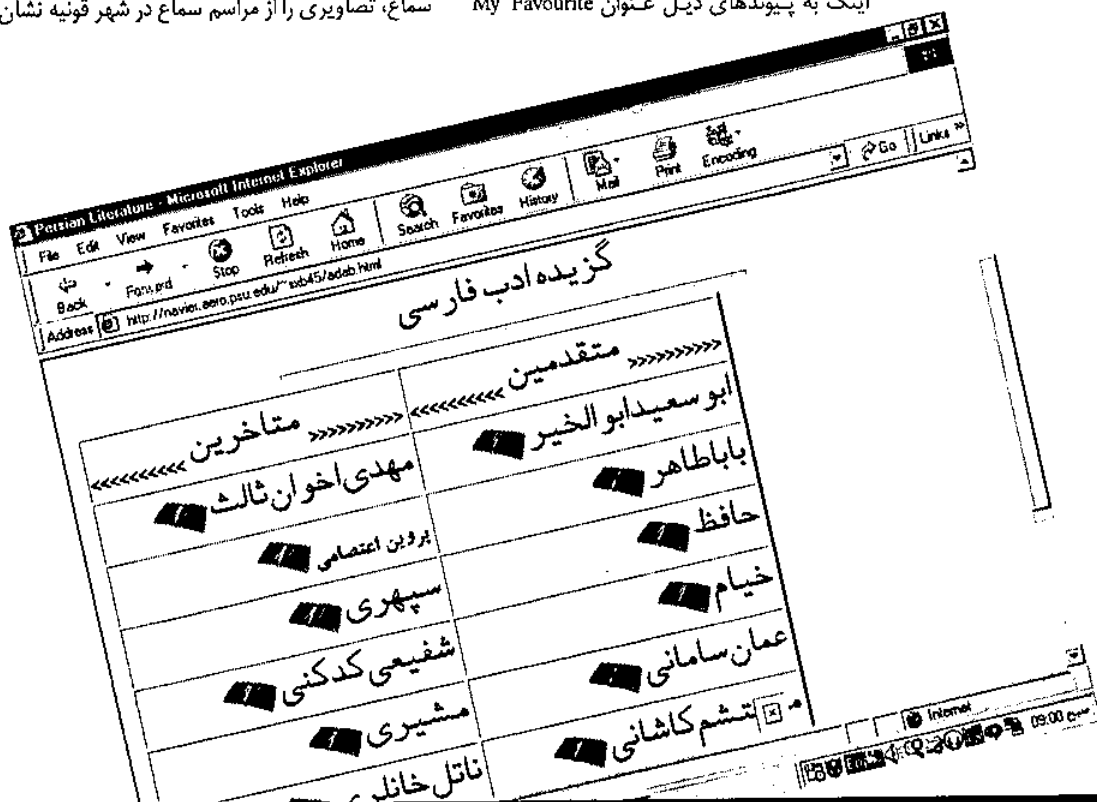 اینک به پیوندهای ذیل عنوان My Favourite
سماع، تصاویری را از مراسم سماع در شهر قونیه نشان
Persian Literature - Microsoft Internet Explorer
File Edit View Favorites Tools Help
Back Forward Stop Refresh Home Search Favorites History Mail Print Encoding
Address http://navier.aero.psu.edu/~sxb45/adab.html Go Links »
گزیده ادب فارسی
>>>>>>>>>> متقدمین <<<<<<<<<<
>>>>>>>>>> متاخرین <<<<<<<<<<
ابو سعیدابو الخیر
مهدی اخوان ثالث
باباطاهر
پروین اعتصامی
حافظ
سپهری
خیام
شفیعی کدکنی
عمان سامانی
مشیری
م تشم کاشانی
ناتل خانلری
Internet
09:00 صبح